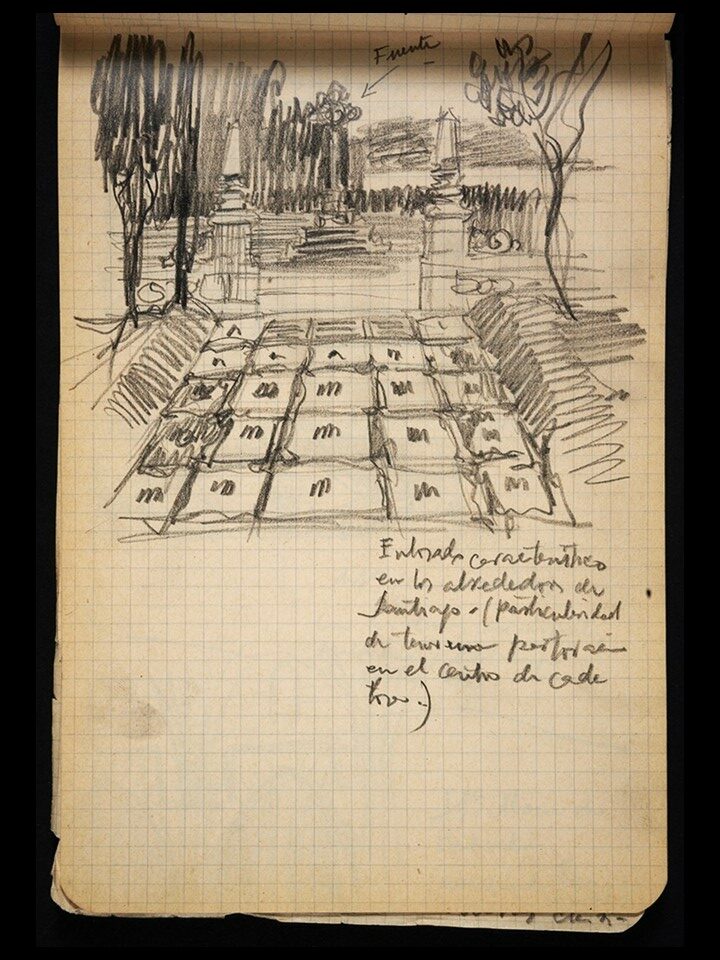 Fuente
Enlosado característico
en los alrededores de
Santiago. (particularidad
de terreno
en el centro de cada